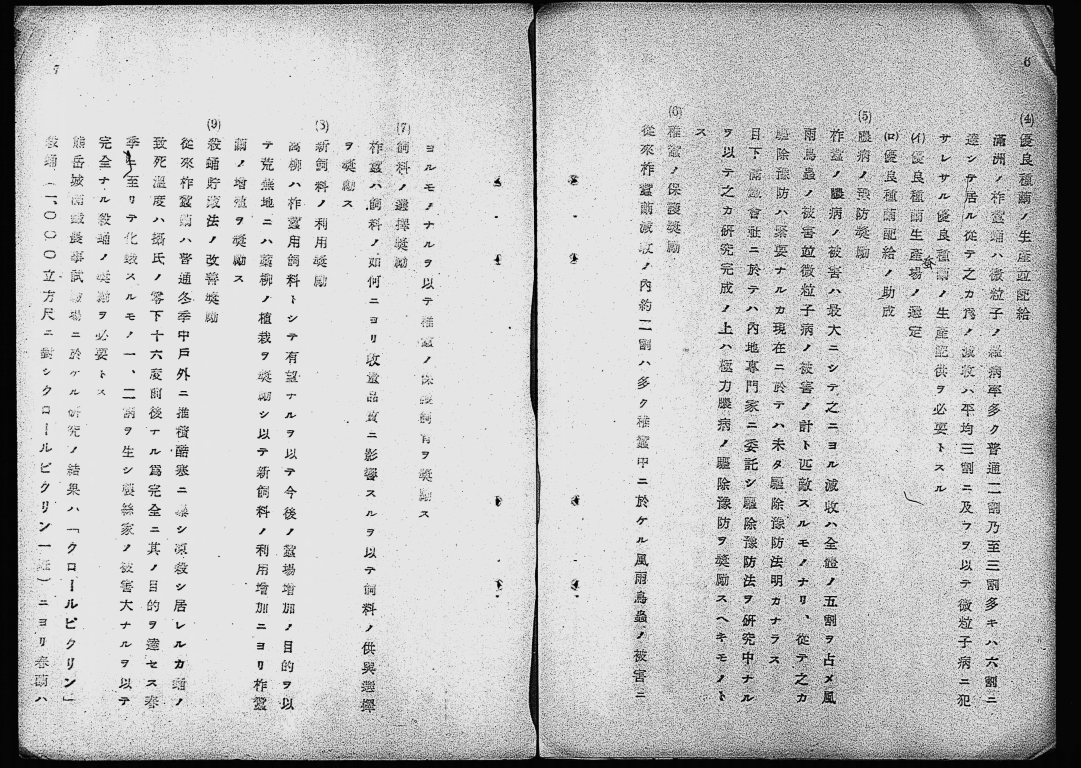 6
(4)優良種繭ノ生産竝配給
滿洲ノ柞蠶蛹ハ微粒子ノ罹病率多ク普通二割乃至三割多キハ六割ニ
達シテ居ル從テ之カ爲ノ減收ハ平均三割ニ及フヲ以テ微粒子病ニ犯
サレサル優良種繭ノ生産配供ヲ必要トスル
(イ)優良種繭生産場ノ選定
(ロ)優良種繭配給ノ助成
(5)膿病ノ豫防奬勵
柞蠶ノ膿病ノ被害ハ最大ニシテ之ニヨル減收ハ全體ノ五割ヲ占メ風
雨鳥蟲ノ被害竝微粒子病ノ被害ノ計ト匹敵スルモノナリ、從テ之カ
驅除豫防ハ緊要ナルカ現在ニ於テハ未タ驅除豫防法明カナラス
目下滿蠶會社ニ於テハ內地專門家ニ委託シ驅除豫防法ヲ研究中ナル
ヲ以テ之カ研究完成ノ上ハ極力膿病ノ驅除豫防ヲ奬勵スヘキモノト
ス
(6)稚蠶ノ保護奬勵
從來柞蠶繭減收ノ內約二割ハ多ク稚蠶中ニ於ケル風雨鳥蟲ノ被害ニ
7
ヨルモノナルヲ以テ稚蠶ノ保護飼育ヲ奬勵ス
(7)飼料ノ選擇奬勵
柞蠶ハ飼料ノ如何ニヨリ收量品質ニ影響スルヲ以テ飼料ノ供與選擇
ヲ奬勵ス
(8)新飼料ノ利用奬勵
蒿柳ハ柞蠶用飼料トシテ有望ナルヲ以テ今後ノ蠶場增加ノ目的ヲ以
テ荒蕪地ニハ蒿柳ノ植栽ヲ奬勵シ以テ新飼料ノ利用增加ニヨリ柞蠶
繭ノ增殖ヲ奬勵ス
(9)殺蛹貯藏法ノ改善奬勵
從來柞蠶繭ハ普通冬季中戶外ニ推積酷寒ニ曝シ凍殺シ居レルカ蛹ノ
致死溫度ハ攝氏ノ零下十六度前後ナル爲完全ニ其ノ目的ヲ達セス春
季ニ至リテ化蛾スルモノ一、二割ヲ生シ製絲家ノ被害大ナルヲ以テ
完全ナル殺蛹ノ奬勵ヲ必要トス
熊岳城滿鐵農事試驗場ニ於ケル研究ノ結果ハ「クロールピクリン」
殺蛹(一、〇〇〇立方尺ニ對シクロールピクリン一瓩)ニヨリ春繭ハ